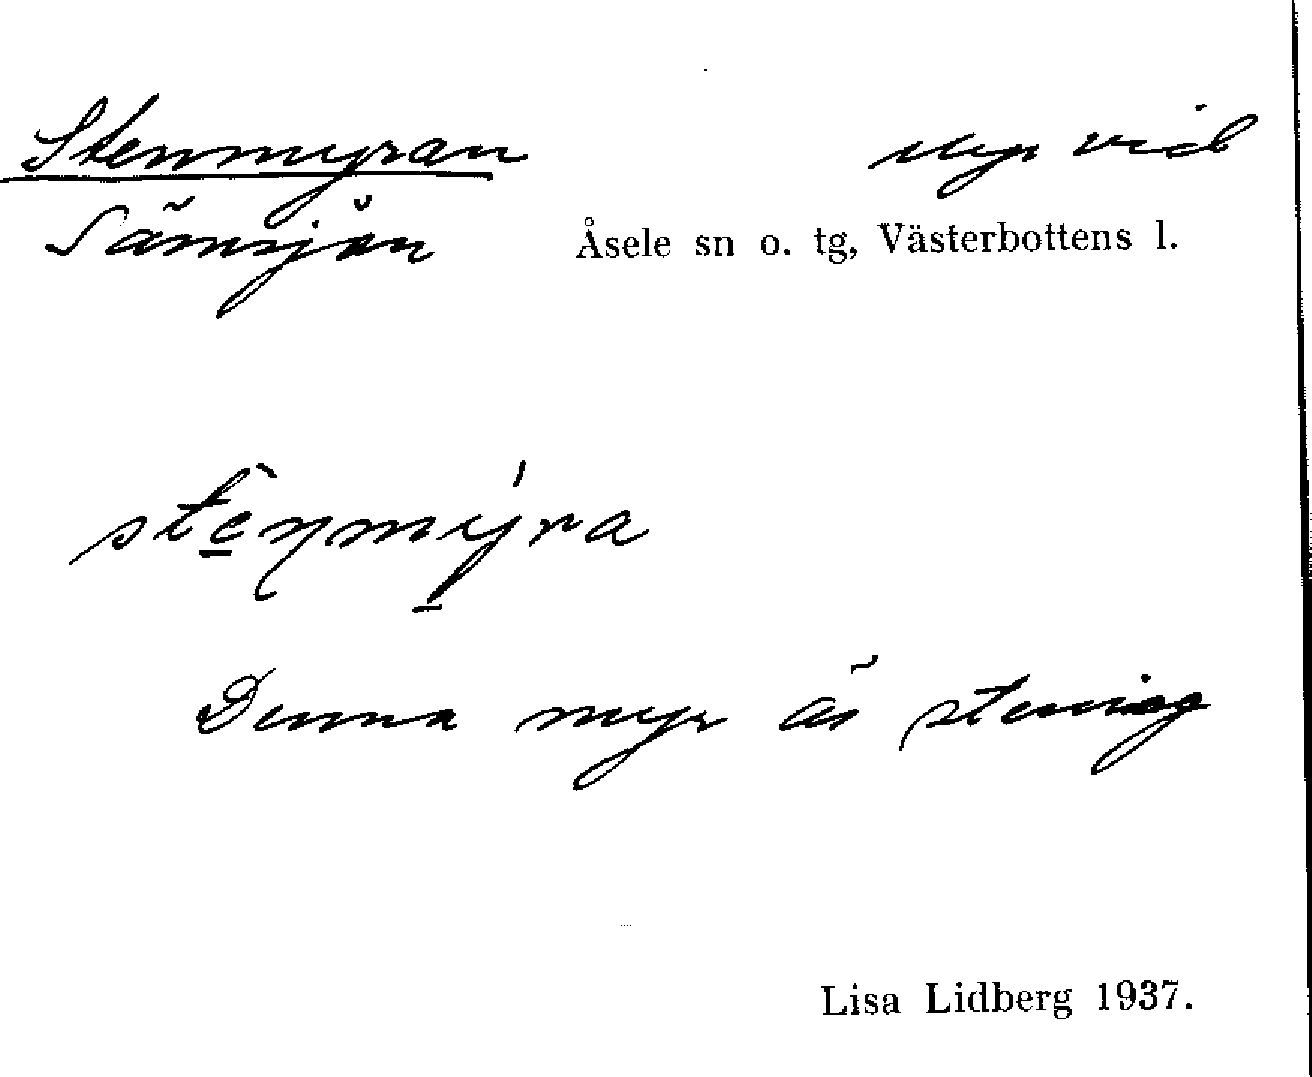 Stenmyran Myr vid
Sämsjön Åsele sn o. tg, Västerbottens l.
stenmyra
Denna myr är stenig
Lisa Lidberg 1937.